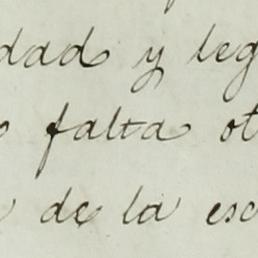 dad y leg
falta ot
de la esc